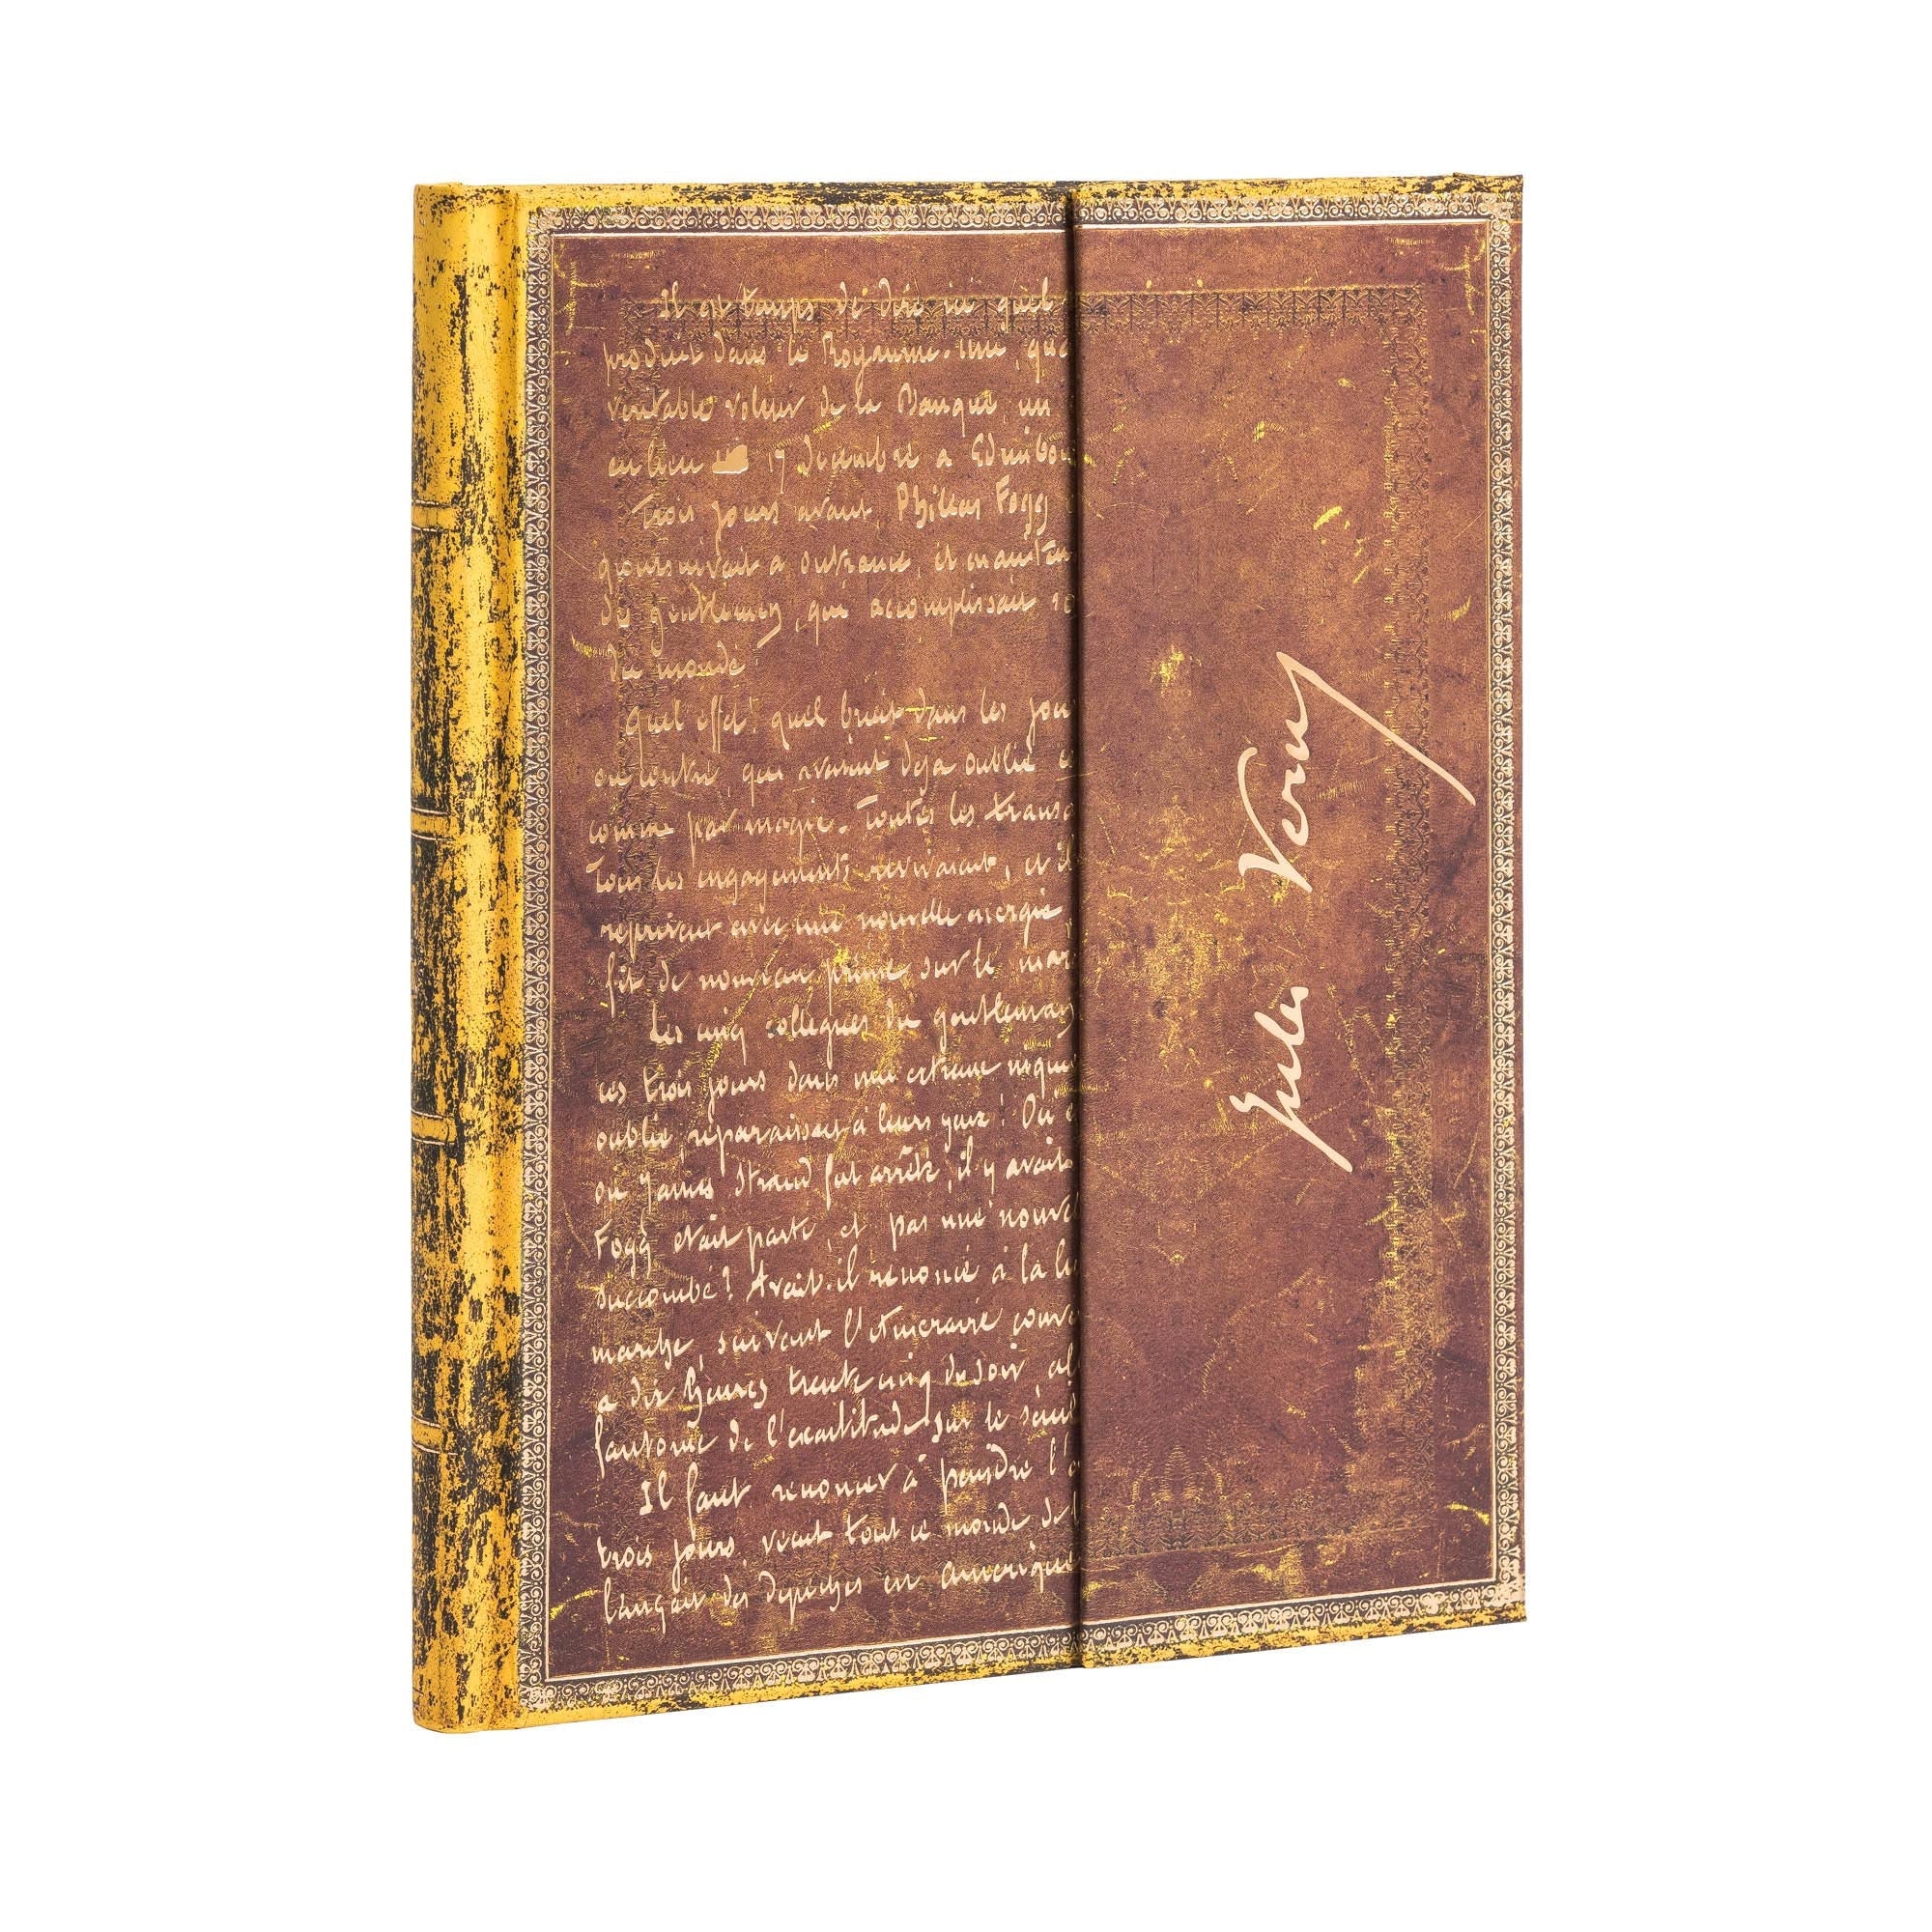 Il est temps de dire ici quel
produit dans le Royaume-Uni, qua
véritable voleur de la Banque, un
eu lieu 17 décembre a Edimbou
Trois jours avant, Phileas Fogg
poursuivait a outrance, et mainten
de gentleman, qui accomplissait
du monde
Quel effet! quel bruit dans les jou
ou contre, qui avaient deja oublié c
comme par magie. Toutes les transa
Tous les engagements revivaient, et il
reprirent avec une nouvelle energie
fit de nouveau prime sur le mar
Les cinq collegues du gentleman
ces trois jours dans une certaine inquié
oublié, reparaissait à leurs yeux! Où é
où James Strand fut arrêté, il y avait
Fogg etait parti, et pas une nouvel
succombé? Avait-il renoncé à la lu
marche, suivant l'itineraire conve
a dix heures trente cinq du soir, al
fantome de l'exactitude, sur le seuil
Il faut renoncer à peindre l'a
trois jours, vivait tout ce monde de l
lançait des depeches en Amerique
Jules Verne